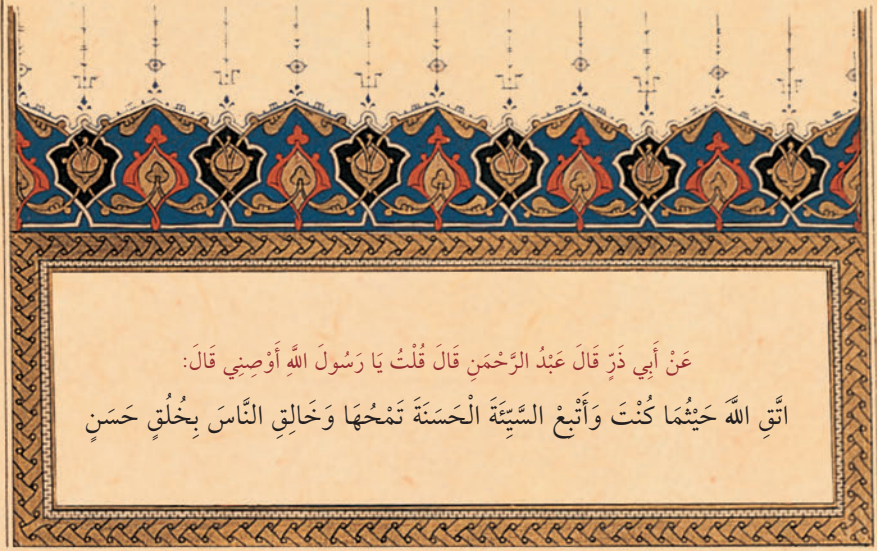 عَنْ أَبِي ذَرٍّ قَالَ عَبْدُ الرَّحْمَنِ قَالَ قُلْتُ يَا رَسُولَ اللَّهِ أَوْصِنِي قَالَ:
اتَّقِ اللَّهَ حَيْثُمَا كُنْتَ وَأَتْبِعْ السَّيِّئَةَ الْحَسَنَةَ تَمْحُهَا وَخَالِقِ النَّاسَ بِخُلُقٍ حَسَنٍ